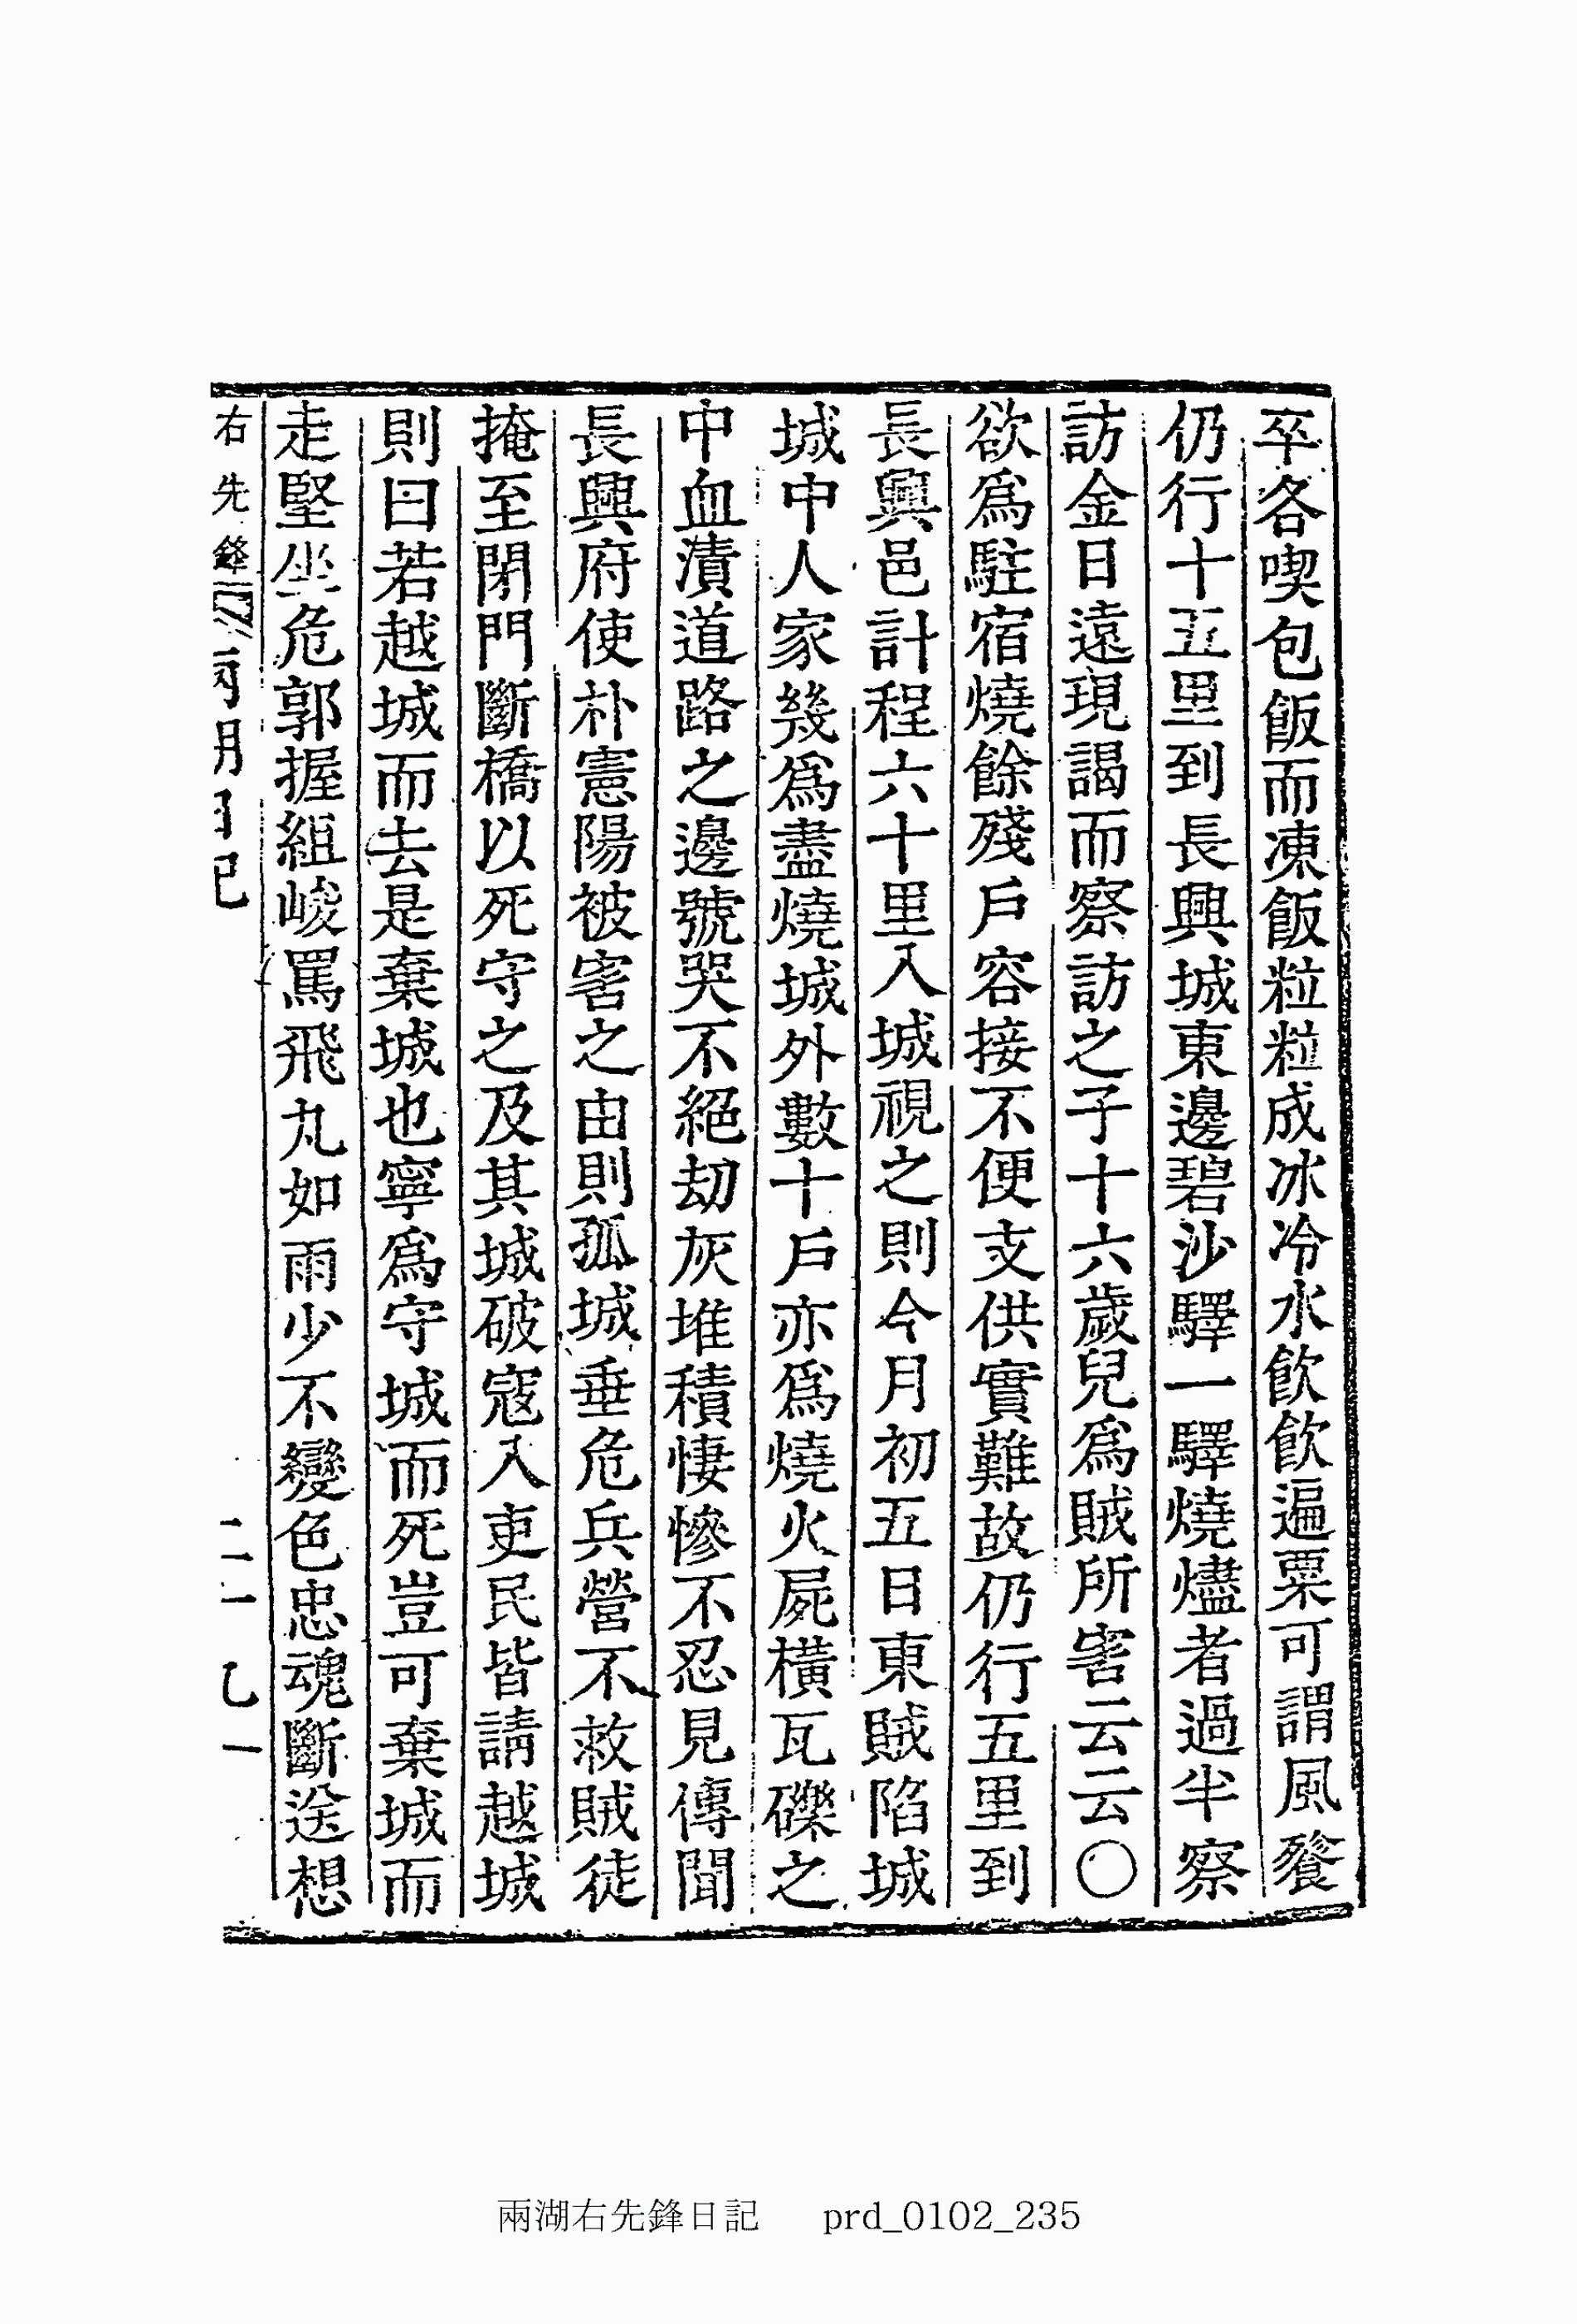 卒各喫包飯而凍飯粒粒成冰冷水飮飮遍粟可謂風餐
仍行十五里到長興城東邊碧沙驛一驛燒燼者過半察
訪金日遠現謁而察訪之子十六歲兒爲賊所害云云〇
欲爲駐宿燒餘殘戶容接不便支供實難故仍行五里到
長興邑計程六十里入城視之則今月初五日東賊陷城
城中人家幾爲盡燒城外數十戶亦爲燒火屍橫瓦礫之
中血漬道路之邊號哭不絕劫灰堆積悽慘不忍見傳聞
長興府使朴憲陽被害之由則孤城垂危兵營不救賊徒
掩至閉門斷橋以死守之及其城破寇入吏民皆請越城
則曰若越城而去是棄城也寧爲守城而死豈可棄城而
走堅坐危郭握組峻罵飛丸如雨少不變色忠魂斷送想
右先鋒 兩胡日記 二一 乙一
兩湖右先鋒日記 prd_0102_235